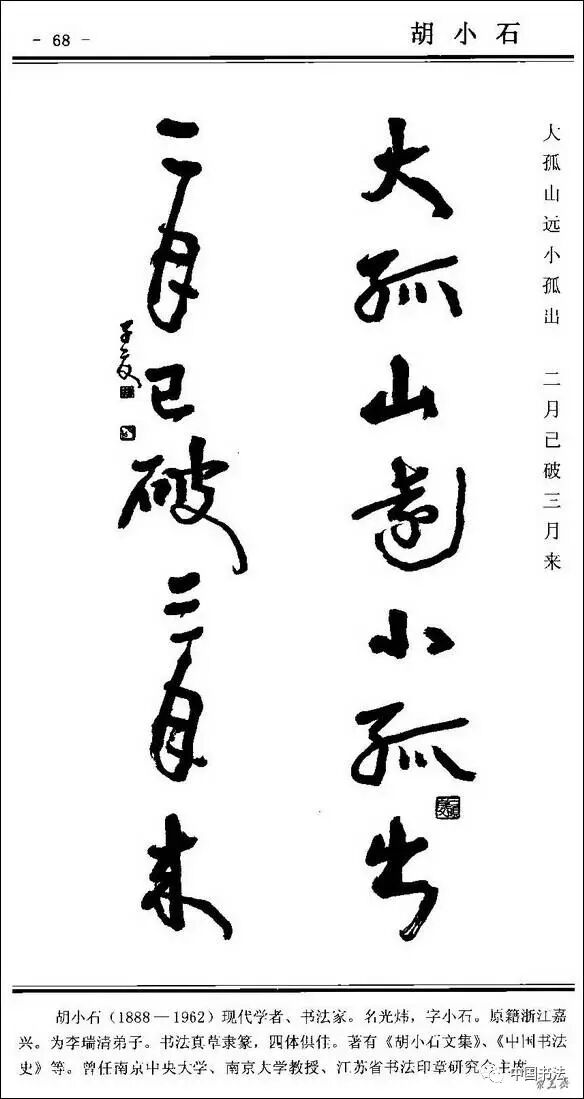 - 68 -
胡小石
大孤山远小孤出 二月已破三月来
大孤山远小孤出
二月已破三月来
子夏
胡小石（1888—1962）现代学者、书法家。名光炜，字小石。原籍浙江嘉
兴。为李瑞清弟子。书法真草隶篆，四体俱佳。著有《胡小石文集》、《中国书法
史》等。曾任南京中央大学、南京大学教授、江苏省书法印章研究会主席。
中国书法